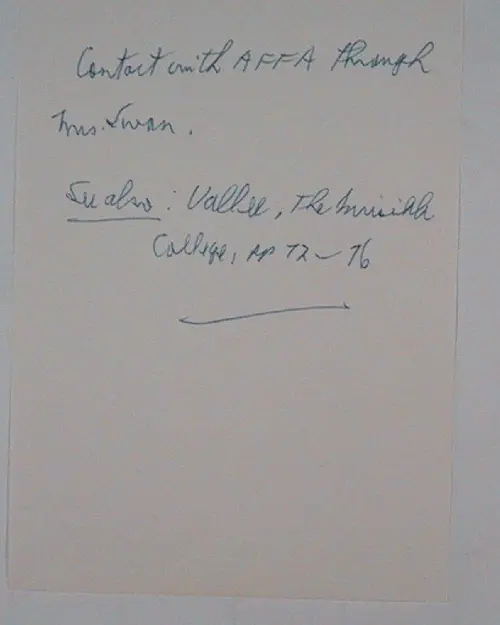 Contact with AFFA through
Mrs. Swan.
See also: Vallee, The Invisible
College, pp 72-76